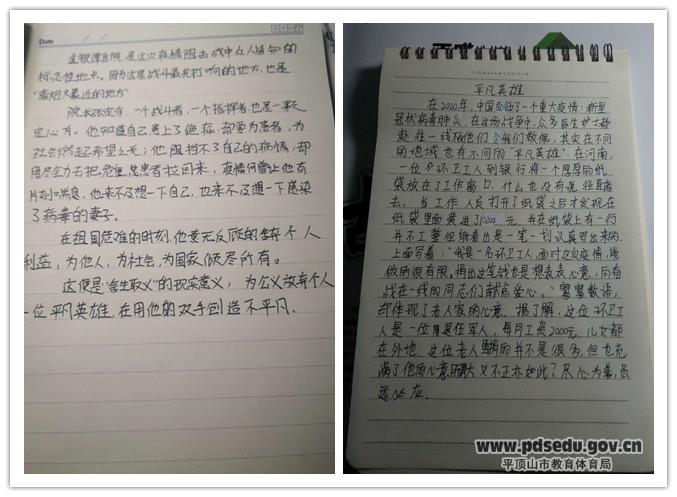 Date
金银潭医院,是这次疫情阻击战中众人皆知的
标志性地点。因为这是战斗最先打响的地方,也是
“离炮火最近的地方”
院长张定宇,一个战斗者,一个指挥者,也是一来
定心
他知道自己患上了绝症,却要为患者,为
社会燃起希望之光;他阻挡不了自己的病情,却
用尽全力去把危重患者拉回来,疫情何曾让他有
片刻喘息,他来不及想一下自己,也来不及想一下感染
了病毒的妻子。
在祖国危难的时刻,他义无反顾的舍弃个人
利益,为他人,为社会,为国家倾尽所有。
这便是“舍生取义”的现实意义,为公义放弃个人
一位平凡英雄,在用他的双手创造不平凡。
平凡英雄
在2020年,中国面临了一个重大疫情·新型
冠状病毒肺炎,在这场战争中,众多医生护士都
赴往一线
我们敬佩,其实在不同
的地域也有不同的“平凡英雄”:在河南,
一位环卫工人到银行将一个
纸
袋放在了工作窗口,什么也没有说,径直离
去,当工作人员打开了纸袋之后才发现在
纸袋里面装进了
元,并在纸袋上有一行
并不工整但能看出是一笔一划认真写出来的,
上面写着:“我是一名环卫工人,面对这次疫情,我
做的很有限,捐出这笔钱也是想表表心意,向奋
战在一线的同志们献点爱心。”寥寥数语,
却体现了老人家的心意。据了解,这位环卫
工人是一位退伍军人,每月工资2000元,儿女都
在外地。这位老人捐的并不是很多,但也充
满了他的心意,
大义不正亦如此?尽心为善,虽
远必应。
www.pdsedu.gov.cn
平顶山市教育体育局